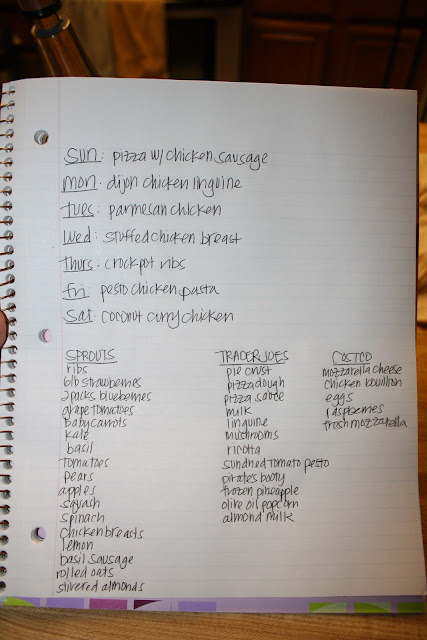 sun: pizza w/ chicken sausage
mon: dijon chicken linguine
tues: parmesan chicken
wed: stuffed chicken breast
thurs: crockpot ribs
fri: pesto chicken pasta
sat: coconut curry chicken
SPROUTS
ribs
6lb strawberries
2 packs blueberries
grape tomatoes
baby carrots
kale
basil
tomatoes
pears
apples
squash
spinach
chicken breasts
lemon
basil sausage
rolled oats
slivered almonds
TRADER JOES
pie crust
pizza dough
pizza sauce
milk
linguine
mushrooms
ricotta
sundried tomato pesto
pirates booty
frozen pineapple
olive oil popcorn
almond milk
COSTCO
mozzarella cheese
chicken bouillon
eggs
raspberries
fresh mozzarella